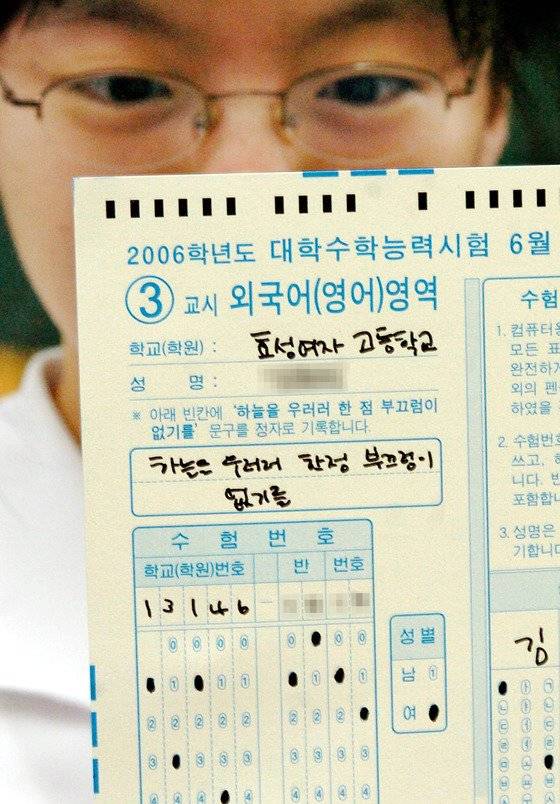 2006학년도 대학수학능력시험 6월
③ 교시 외국어(영어)영역
학교(학원) : 효성여자 고등학교
성 명 :
※ 아래 빈칸에 '하늘을 우러러 한 점 부끄럼이
없기를' 문구를 정자로 기록합니다.
하늘을 우러러 한점 부끄럼이
없기를
수 험 번 호
학교(학원)번호 반 번호
1 3 1 4 6 –
0 0 0 0 0 0 0
1 1 1 1
2 2 2 2 2 2 2
3 3 3 3 3 3 3
4 4 4 4 4 4
성별
남 1
여
수험
1. 컴퓨터용
모든 표
완전하게
외의 펜
하였을
2. 수험번호
쓰고, 하
니다. 빈
포함합니
3. 성명은
기합니다
김